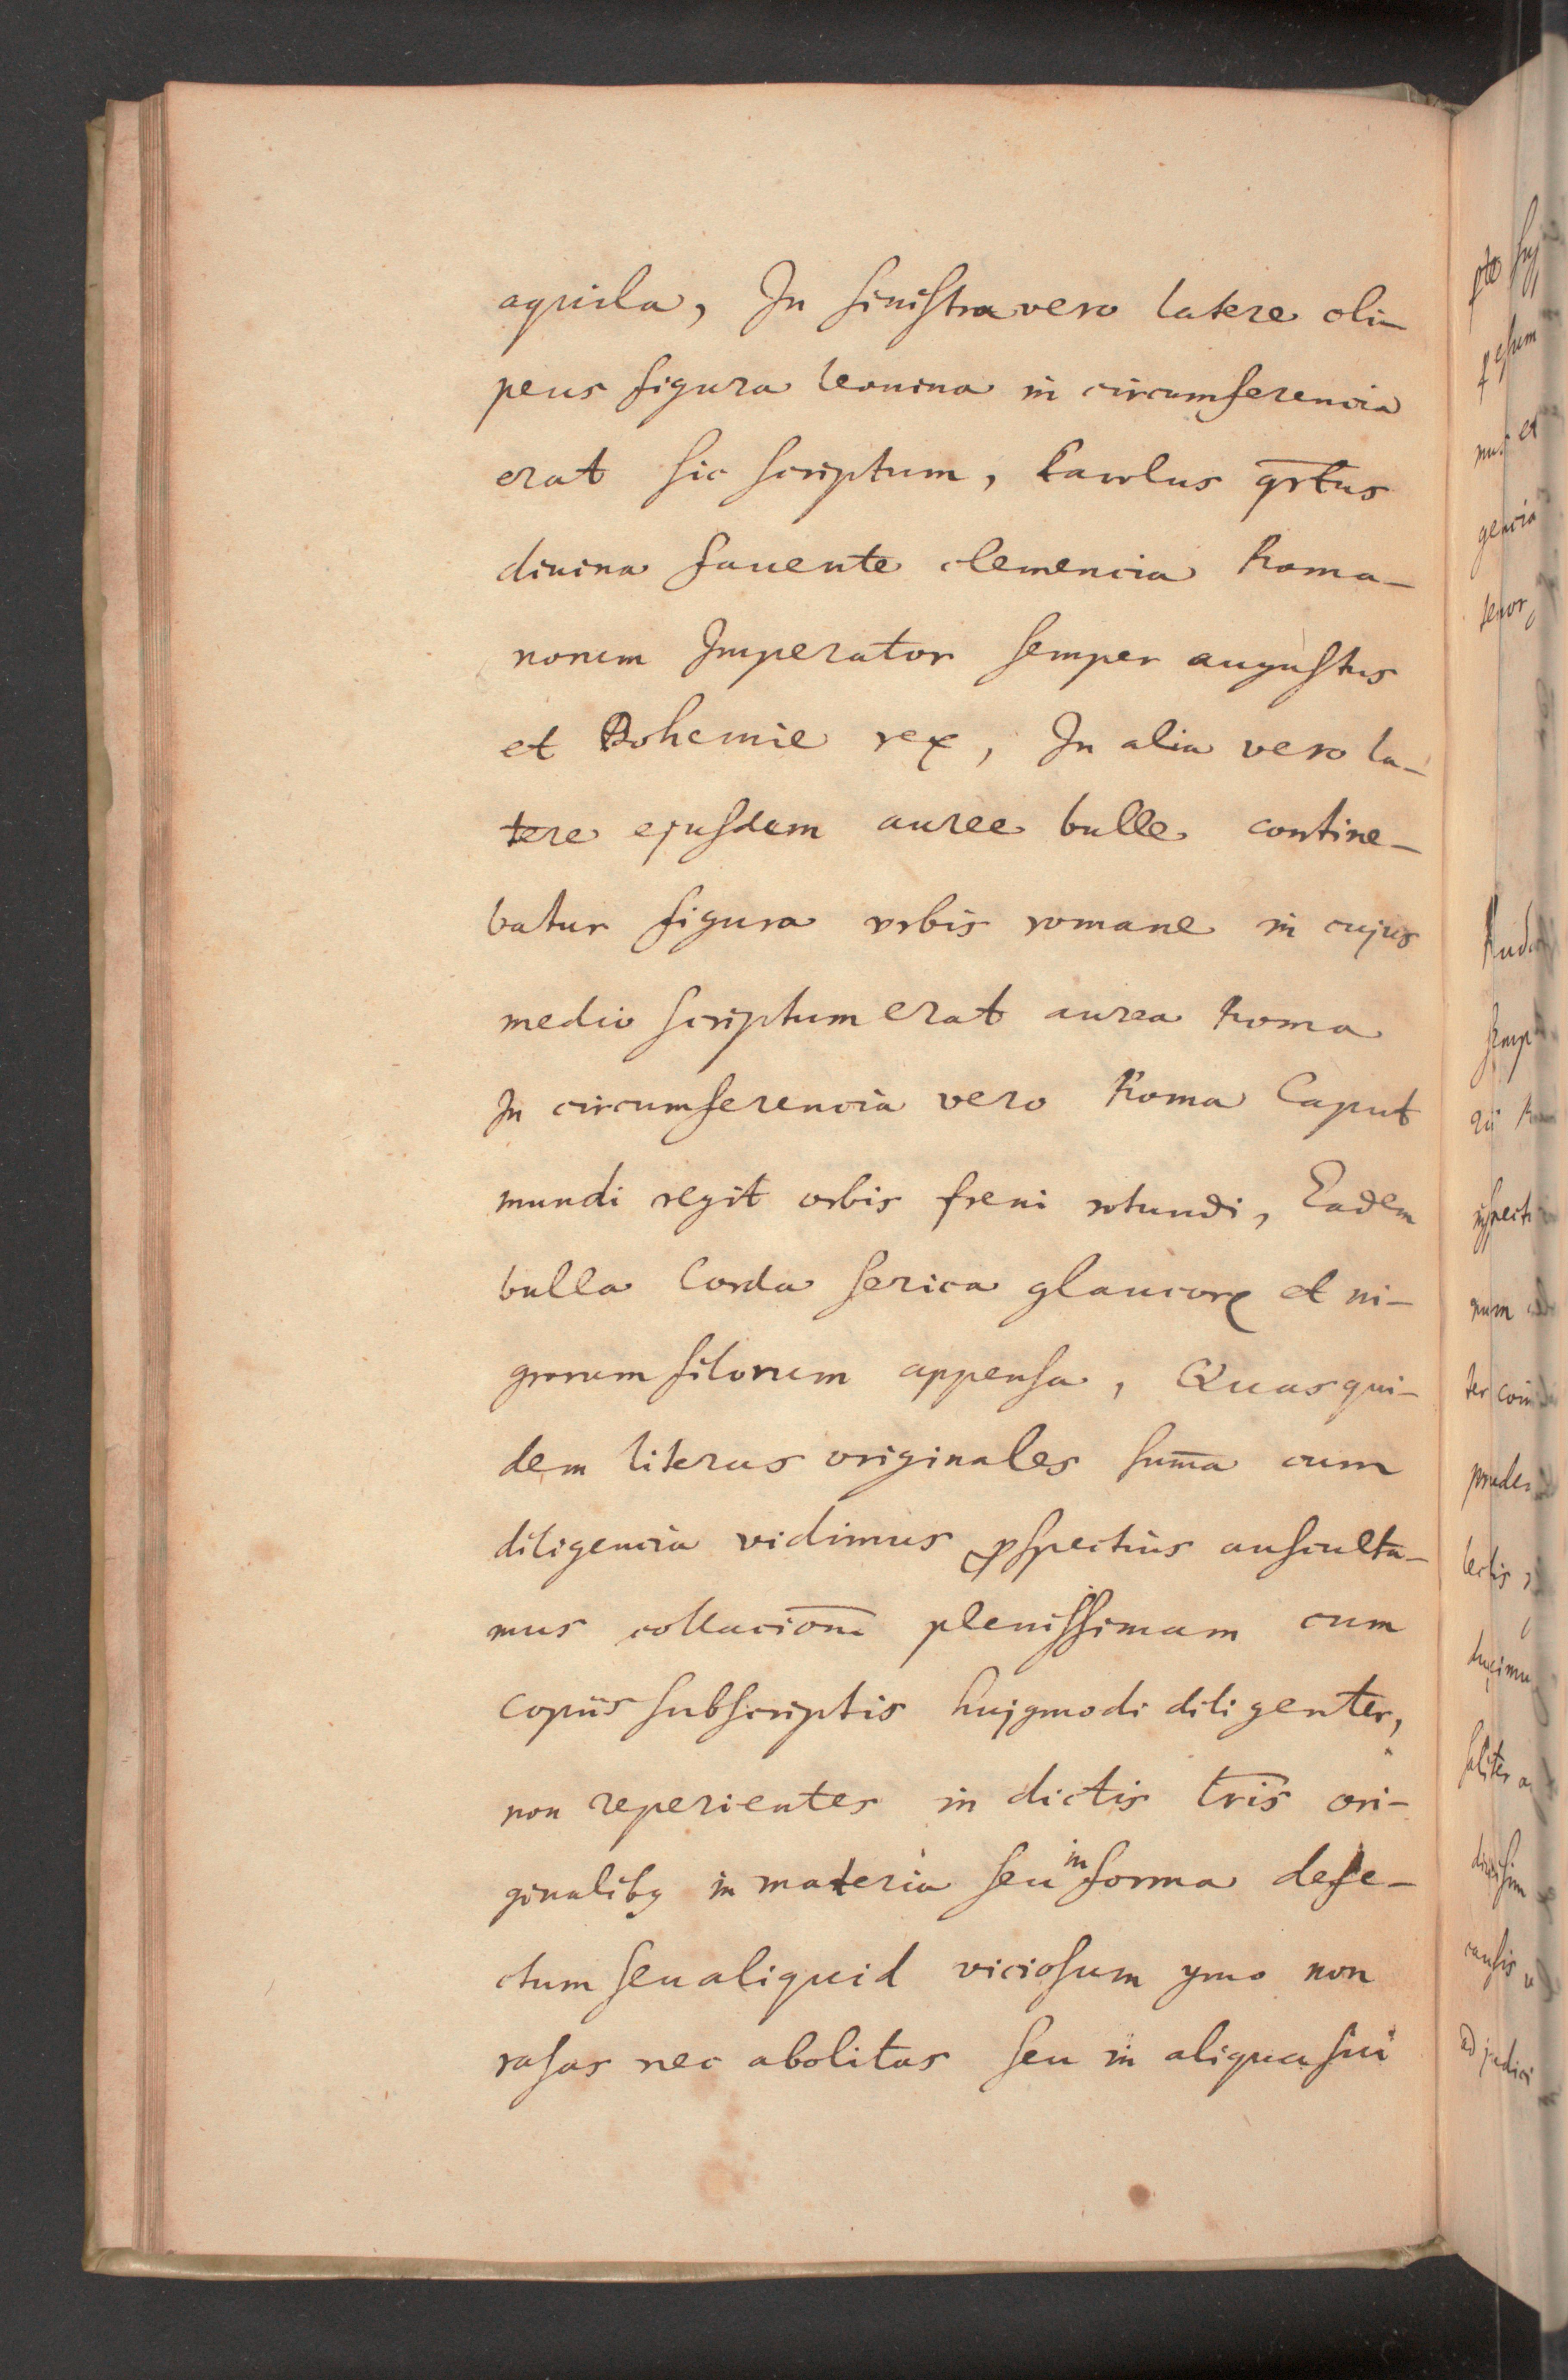 aquila, In sinistra vero latere cli-
peus figura leonina in circumferencia
erat sic scriptum, Karolus qrtus
diuina fauente clemencia Roma-
norum Imperator semper augustus
et Bohemie rex, In alia vero la-
tere ejusdem auree bulle contine-
batur figura vrbis romane in cujus
medio scriptum erat aurea Roma
In circumferencia vero Roma Caput
mundi regit orbis freni rotundi, Eadem
bulla Corda serica glaucorꝝ et ni-
grorum filorum appensa, Quas qui-
dem literas originales sum̄a cum
diligencia vidimus ꝓspectius ausculta-
mus collacion̄e plenissimam cum
copiis subscriptis hujꝰmodi diligenter,
non reperientes in dictis lr̄is ori-
ginalibꝫ in materia seu in forma defe-
ctum seu aliquid viciosum ymo non
rasas nec abolitas seu in aliqua sui